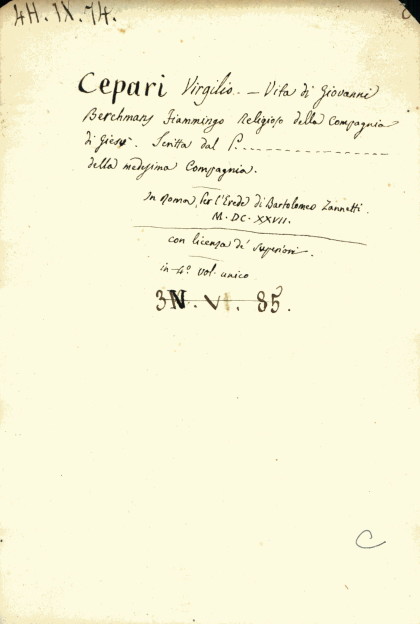 4H.IX.74.
Cepari Virgilio. – Vita di Giovanni
Berchmans Fiammingo Religioso della Compagnia
di Giesù. Scritta dal P.
della medesima Compagnia.
In Roma, Per l'Erede di Bartolomeo Zannetti.
M.DC.XXVII.
con licenza de' Superiori.
in-4º. vol. unico
3N.VI.85.
C